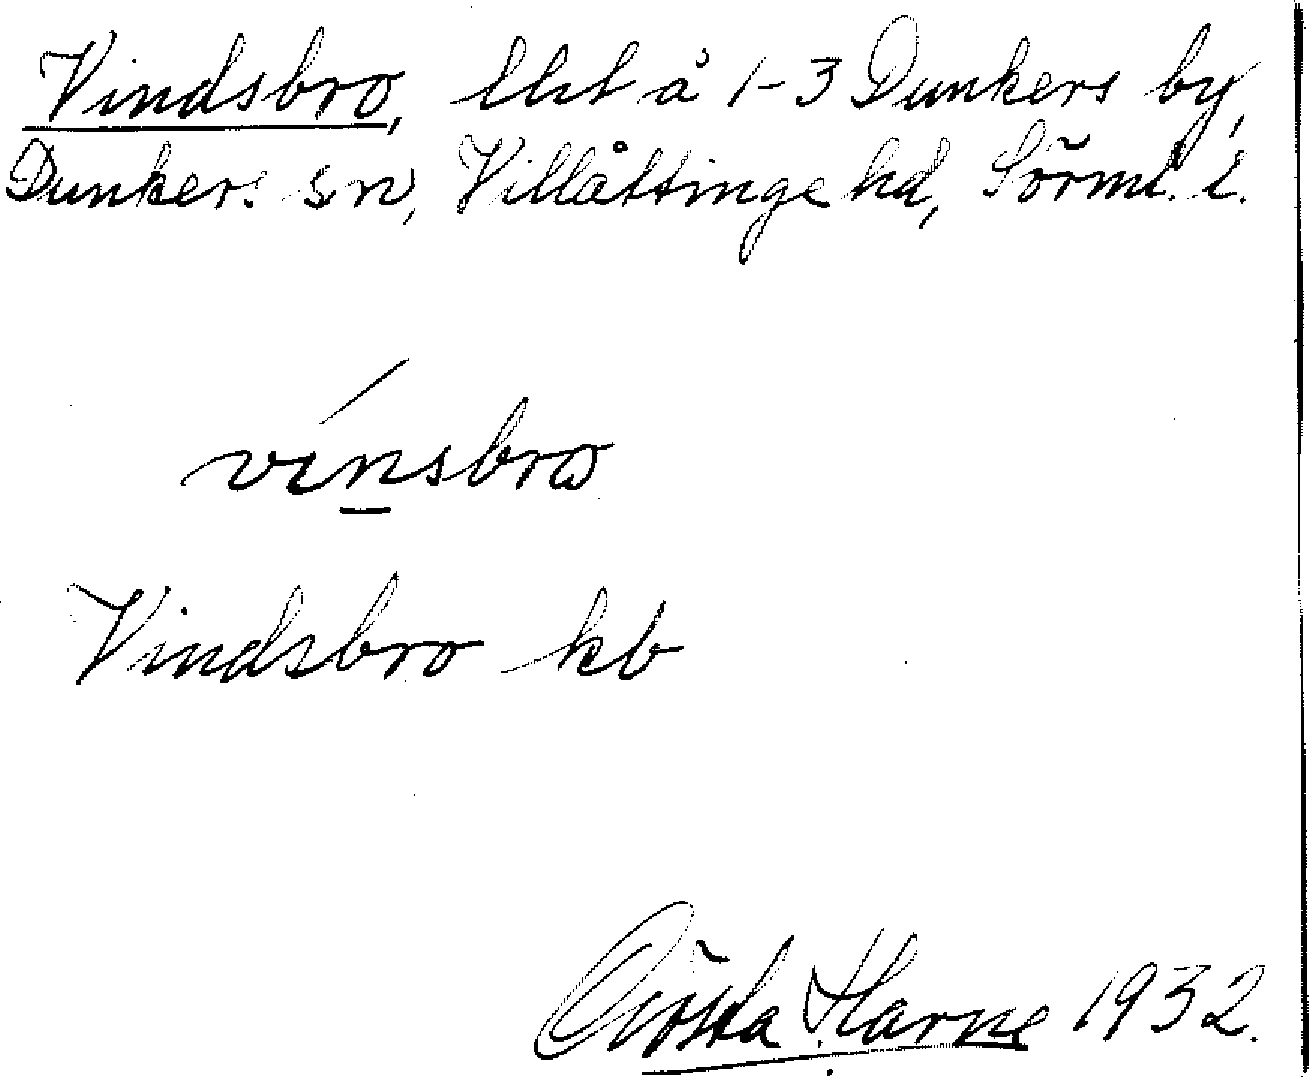 Vindsbro, lht å 1-3 Dunkers by,
Dunkers sn, Villåttinge hd, Sörml. l.
vinsbro
Vindsbro kb
Gösta Harne 1932.